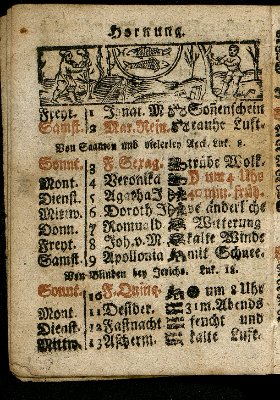 Hornung.
Freyt. 1 Ignat. M Soñenschein
Samst. 2 Mar. Rein. rauhe Luft.
Von Saamen und vielerley Acck. Luk. 8.
Sonnt. 3 F. Sexag. trübe Wolk.
Mont. 4 Veronika um 4 Uhr
Dienst. 5 Agatha 40 min. früh.
Mittw. 6 Doroth Jh änderliche
Donn. 7 Romuald Witterung
Freyt. 8 Joh. v. M kalte Winde
Samst. 9 Apollonia mit Schnee.
Von Blinden bey Jericho. Luk. 18.
Sonnt. 10 F. Quinq. um 8 Uhr
Mont. 11 Desider. 31 m. Abends
Dienst. 12 Fastnacht feucht und
Mittw. 13 Ascherm. kalte Luft.